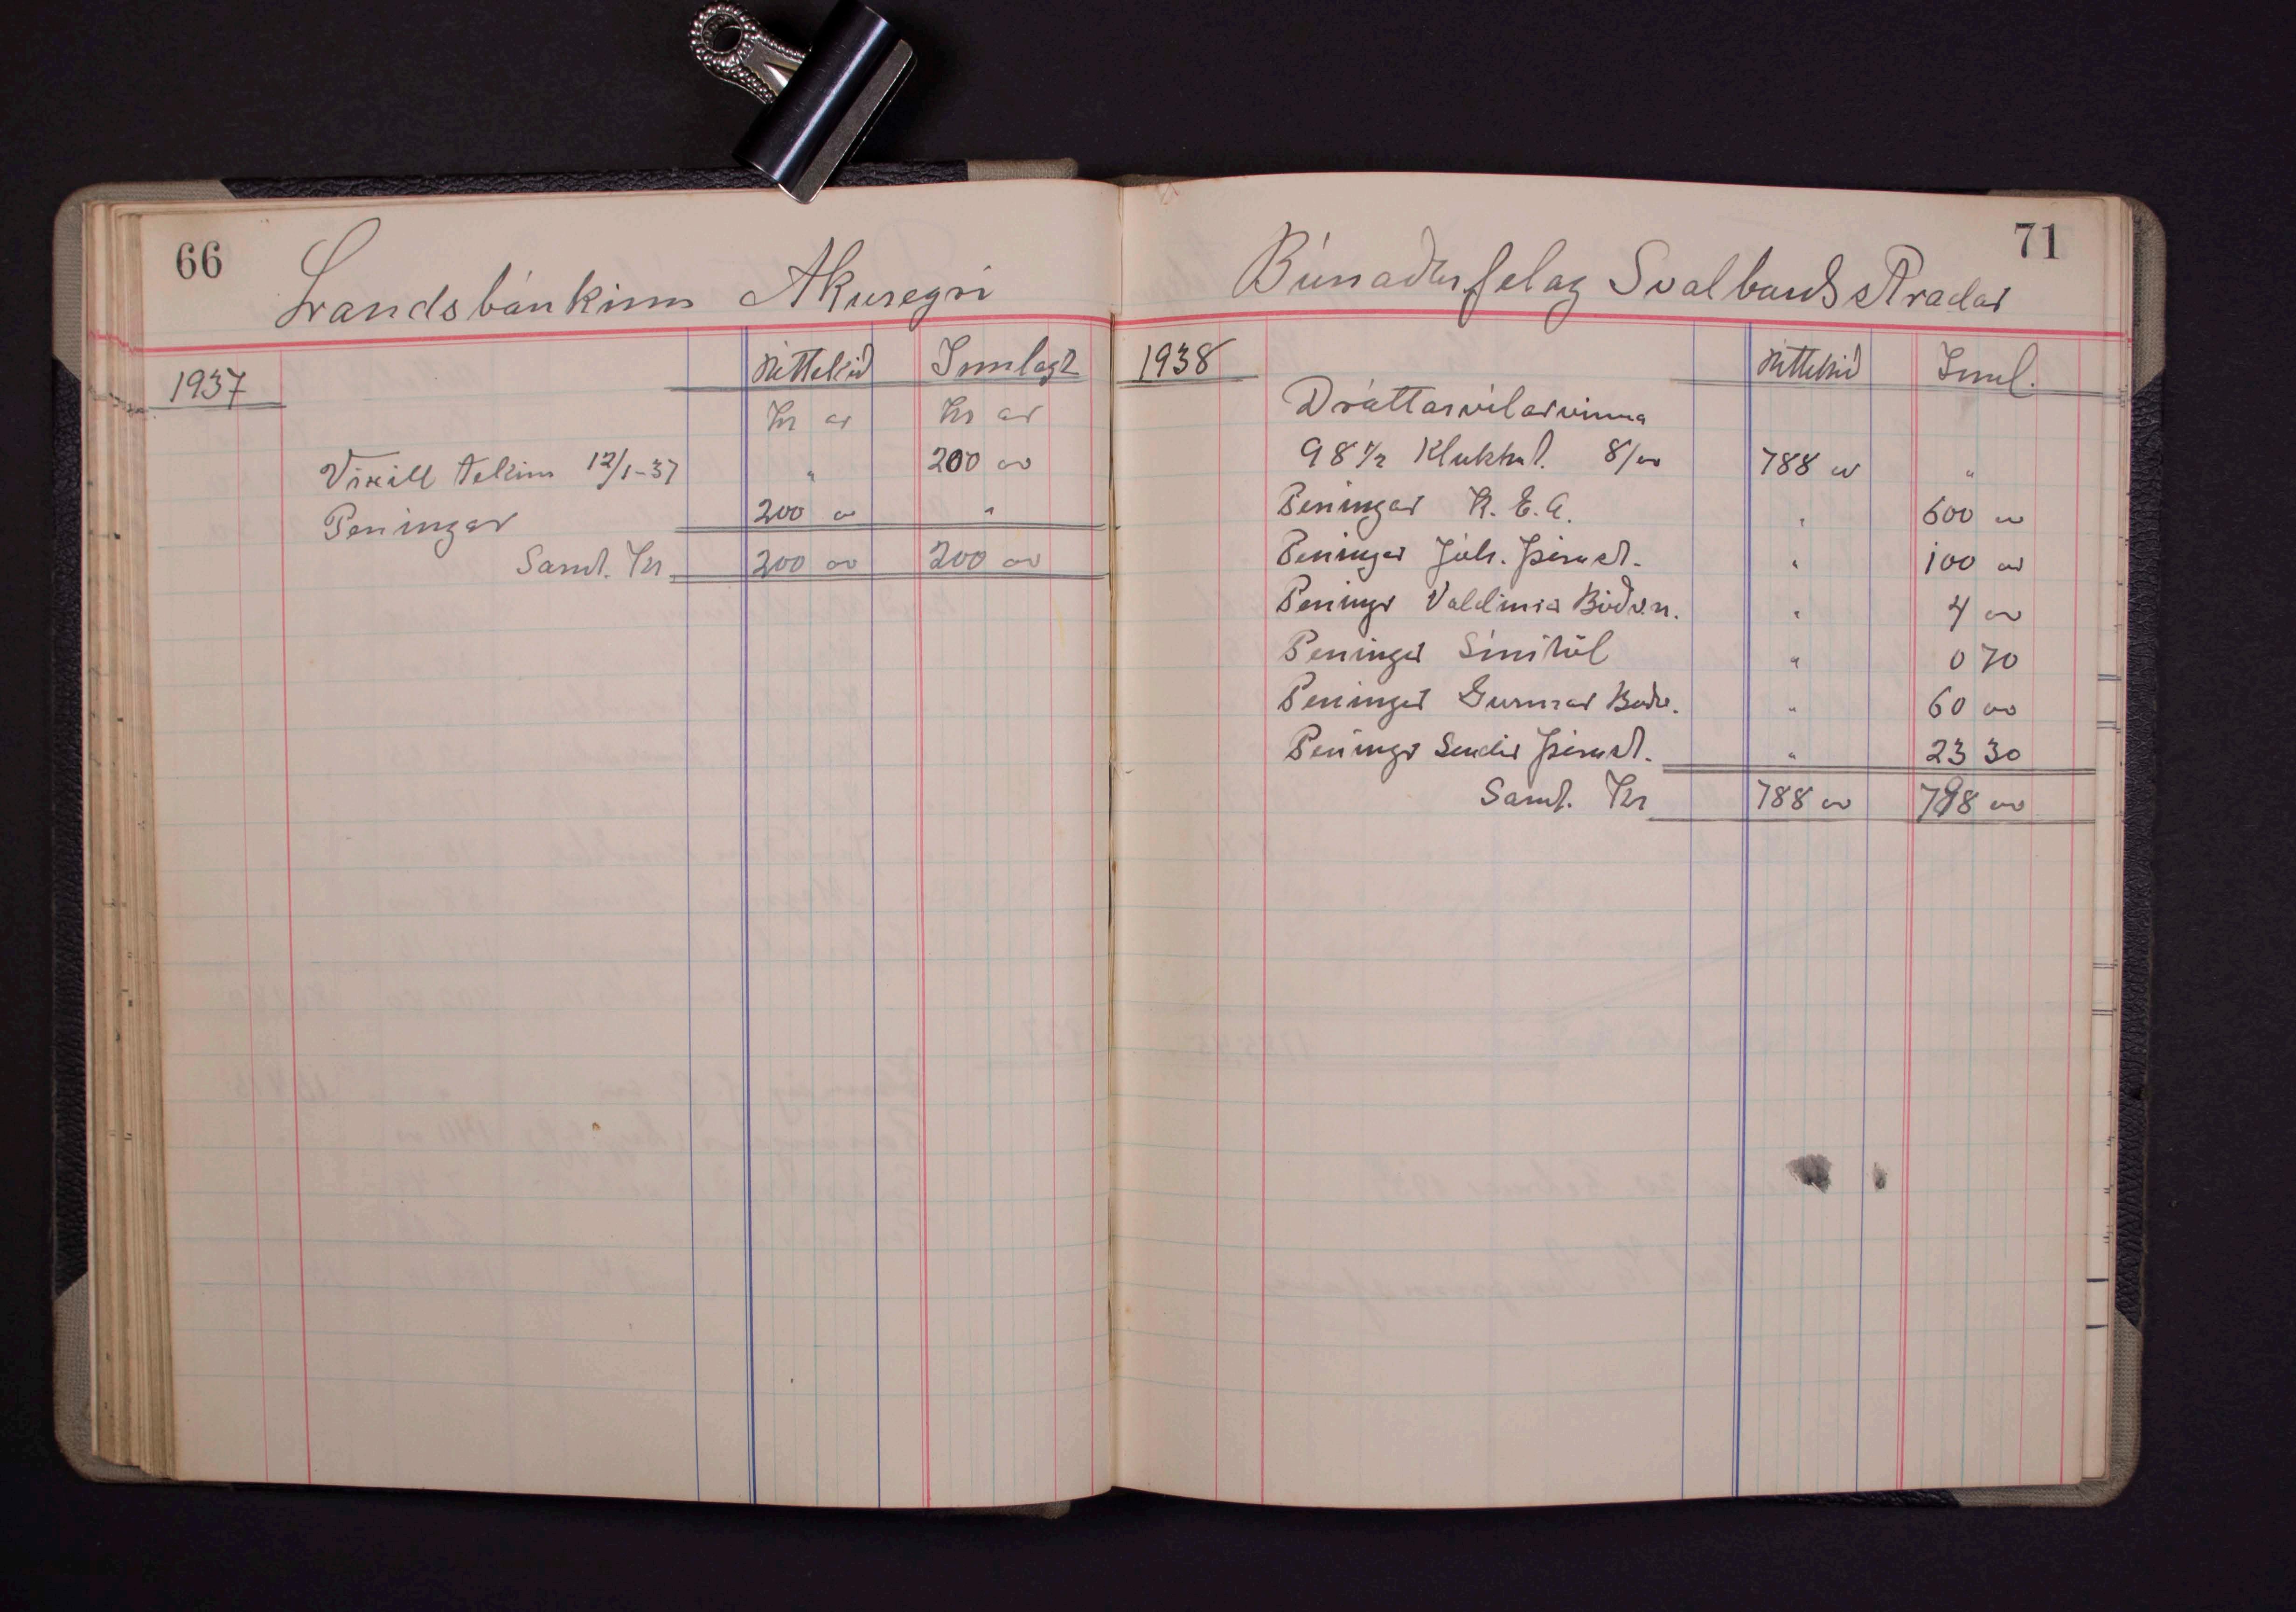 66
Landsbánkinn Akureyri
1937
Úttekið Innlagt
Kr ar Kr ar
Víxill tekinn 12/1-37 " 200 00
Peningar 200 00 "
Samt. Kr 200 00 200 00
71
Búnaðarfelag Svalbarðsstradar
1938
Úttekið Innl.
Dráttarvélarvinna
98 1/2 Klukkut. 8/00 788 00 "
Peningar K. E. A. " 600 00
Peningar Jóh. " 100 00
Peningar Valdimar Böðv. " 4 00
Peningar Símtöl " 0 70
Peningar Gunnar Böðv. " 60 00
Peningar " 23 30
Samt. Kr 788 00 788 00